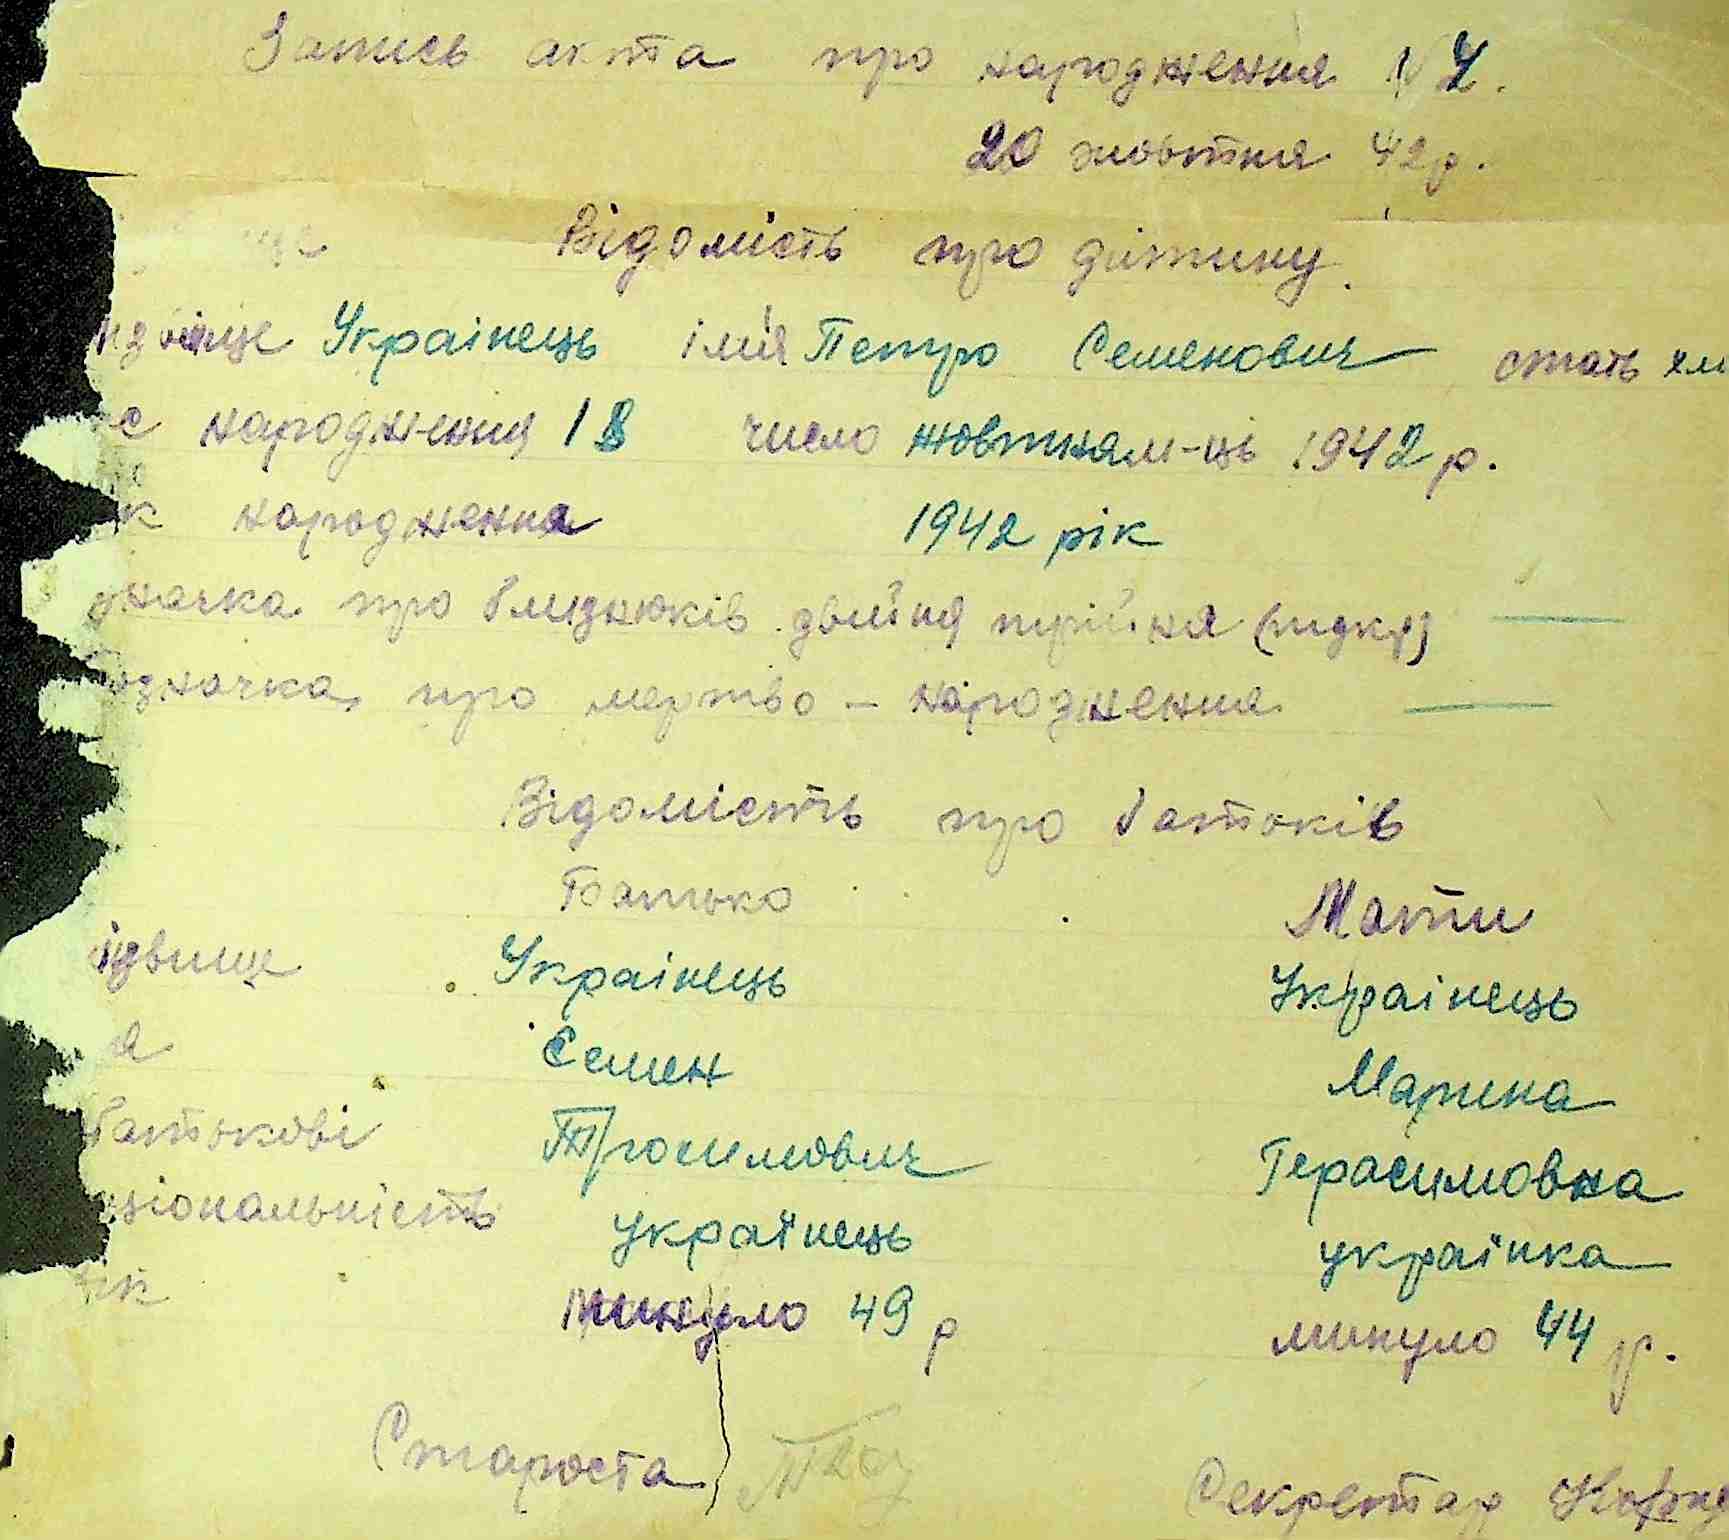 Запись акта про народження N 7.
20 жовтня 42р.
Відомість про дитину.
Українець імя Петро Семенович стать
народження 18 число жовтня м-ць 1942 р.
народження 1942 рік
про близнюків двійня трійня (підкр)
про мертво - народження
Відомість про батьків
Батько Мати
Українець Українець
Семен Марина
Трохимович Герасимовна
українець українка
минуло 49 р минуло 44 р.
Староста Секретар